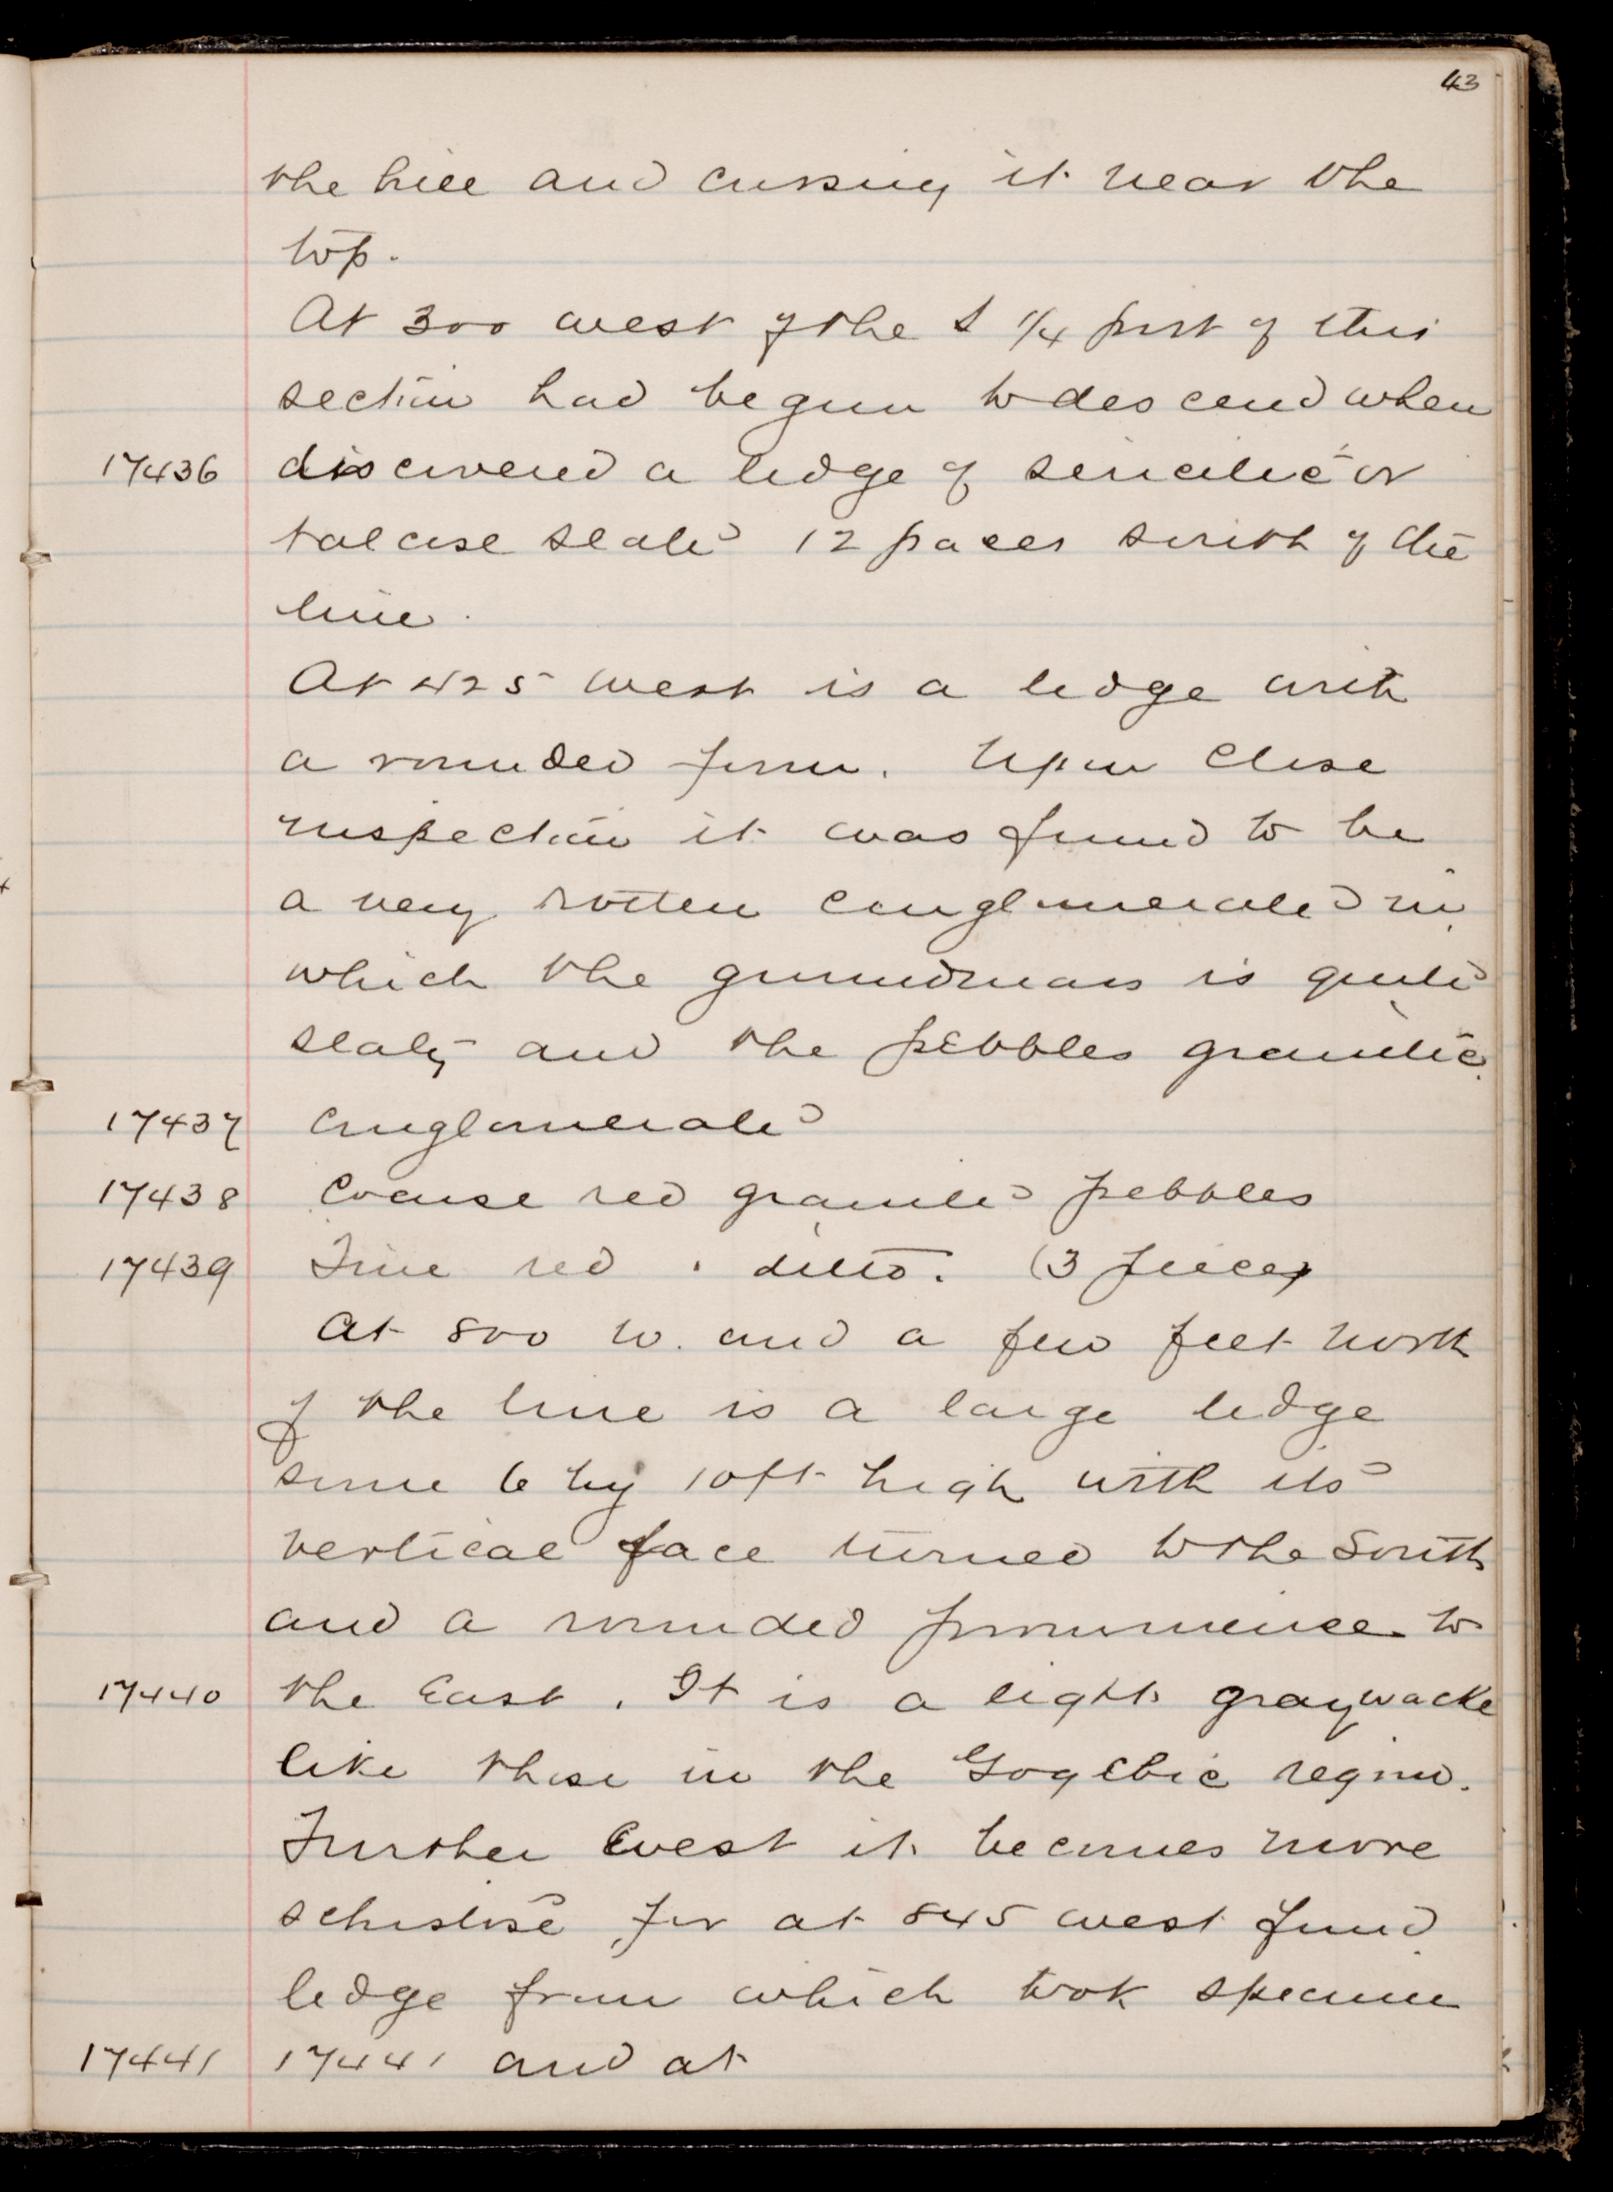 43
the hill and crossing it near the
top.
At 300 west of the S 1/4 post of this
section had begun to descend when
17436 discovered a ledge of sericitic or
talcose slate 12 paces south of the
line.
At 425 west is a ledge with
a rounded form. Upon close
inspection it was found to be
a very rotten conglomerate in
which the groundmass is quite
slaty and the pebbles granitic.
17437 Conglomerate
17438 Coarse red granite pebbles
17439 Fine red " ditto. (3 pieces)
At 800 W. and a few feet north
of the line is a large ledge
some 6 by 10 ft high with its
vertical face turned to the South
and a rounded prominence to
17440 the East. It is a light graywacke
like those in the Gogebic region.
Further west it becomes more
schistose for at 845 west found
ledge from which took specimen
17441 17441 and at